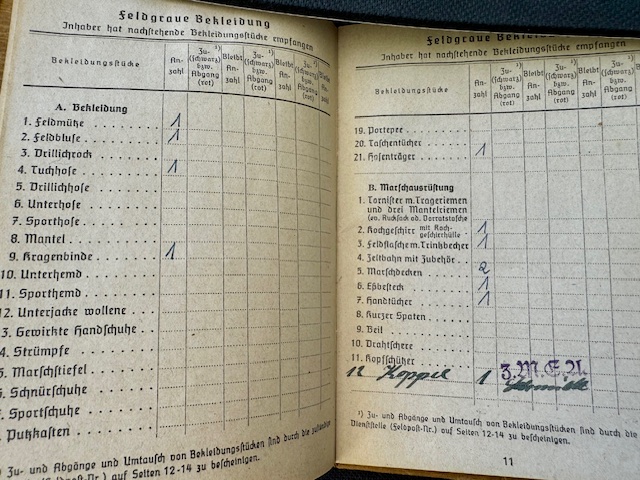 Feldgraue Bekleidung
Inhaber hat nachstehende Bekleidungsstücke empfangen
Bekleidungsstücke
An-
zahl
Zu- ¹)
(schwarz)
bzw.
Abgang
(rot)
Bleibt
An-
zahl
Zu- ¹)
(schwarz)
bzw.
Abgang
(rot)
Bleibt
An-
zahl
Zu- ¹)
(schwarz)
bzw.
Abgang
(rot)
Bleibt
An-
zahl
A. Bekleidung
1. Feldmütze 1
2. Feldbluse 1
3. Drillichrock
4. Tuchhose 1
5. Drillichhose
6. Unterhose
7. Sporthose
8. Mantel
9. Kragenbinde 1
10. Unterhemd
11. Sporthemd
12. Unterjacke wollene
3. Gewirkte Handschuhe
4. Strümpfe
5. Marschstiefel
Schnürschuhe
Sportschuhe
Putzkasten
Zu- und Abgänge und Umtausch von Bekleidungsstücken sind durch die zuständige
(Feldpost-Nr.) auf Seiten 12-14 zu bescheinigen.
Feldgraue Bekleidung
Inhaber hat nachstehende Bekleidungsstücke empfangen
Bekleidungsstücke
An-
zahl
Zu- ¹)
(schwarz)
bzw.
Abgang
(rot)
Bleibt
An-
zahl
Zu- ¹)
(schwarz)
bzw.
Abgang
(rot)
Bleibt
An-
zahl
Zu- ¹)
(schwarz)
bzw.
Abgang
(rot)
Bleibt
An-
zahl
Zu-
(schwarz)
bzw.
Abgang
(rot)
19. Portepee
20. Taschentücher
21. Hosenträger 1
B. Marschausrüstung
1. Tornister m. Trageriemen
und drei Mantelriemen
(ev. Rucksack od. Vorratstasche
2. Kochgeschirr mit Koch-
geschierhülle 1
3. Feldflasche m. Trinkbecher 1
4. Zeltbahn mit Zubehör
5. Marschdecken 2
6. Eßbesteck 1
7. Handtücher 1
8. Kurzer Spaten
9. Beil
10. Drahtschere
11. Kopfschützer
12 Koppel 1 Z.M.E.A.
¹) Zu- und Abgänge und Umtausch von Bekleidungsstücken sind durch die
Dienststelle (Feldpost-Nr.) auf Seiten 12-14 zu bescheinigen.
11